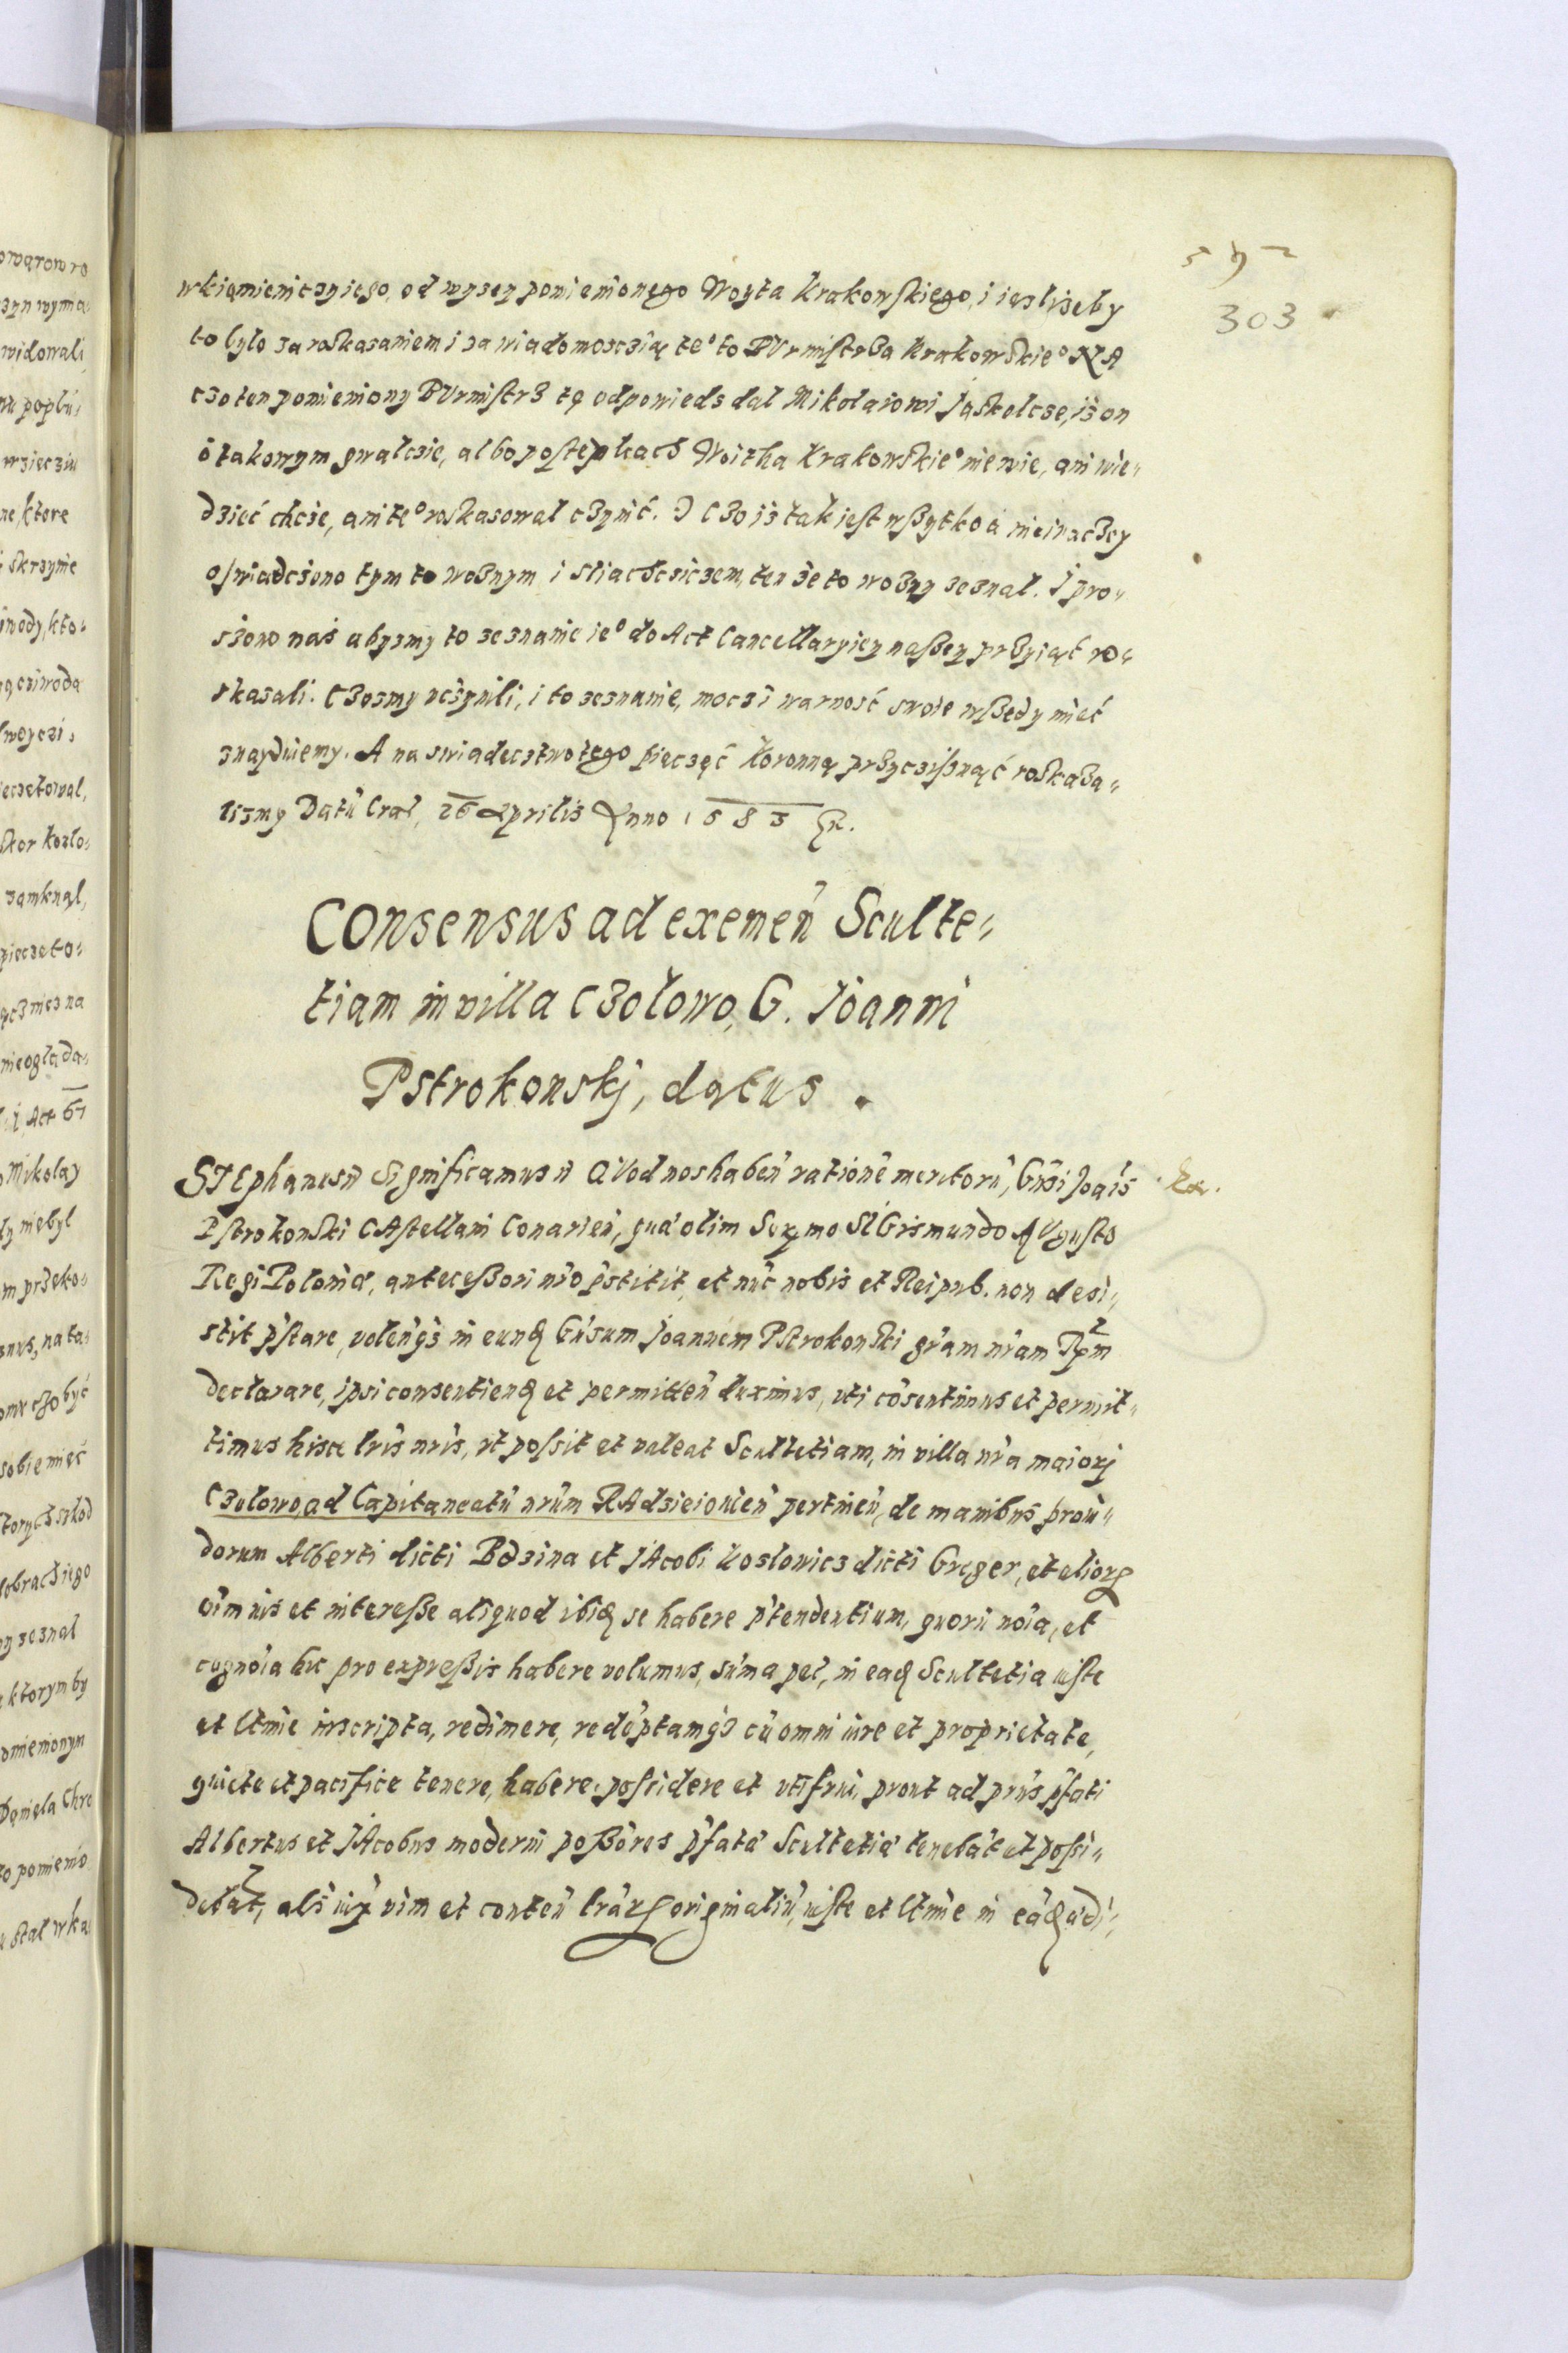 303
wkięmieniczy iego, od wyszey pomienionego Woyta Krakowskiego, i iesliżeby
to było za roskazaniem i za wiadomosczią te° to BUrmistrza Krakowskie° NA
czo ten pomieniony BUrmistrz tę odpowiedz dal Mikolaiowi Jaskolcze, iż on
o takowym gwalczie, albo postępkach Woitha Krakowskie° nie wie, ani wie-
dzieć chcze, ani te° roskazowal czynić. I czo iż tak iest wszytko a nie inaczey
oswiadczono tym to woznym i sliachczicem, ten że to wozny zeznal. I pro-
szono nas abyszmy to zeznanie ie° do Act Cancellaryiey naszey przyiąć ro-
skazali. Czoszmy uczynili, i to zeznanie, mocz i warność swoie wszędy mieć
znayduiemy. A na swiadecztwo tego pięczęć koronną przyczisznąć roskaza-
liszmy Datũ Crac, 26 Aprilis Anno 1583
Consensus ad exemeñ Sculte-
tiam in villa Czołowo, G. Joanni
Pstrokonskj, datus.
STEphanus Significamus QUod nos habeñ rationẽ meritorũ, Gñsi Joãis
Pstrokonski CAstellani Conarieñ, quã olim Serмo SIGismundo AUgusto
Regi Poloniæ, antecessori nrõ pstitit, et nũc nobis et Reipub. non desi-
stit pstare, volentes in eund Gñsum Joannem Pstrokonski grãm nrãm
declarare, ipsi consentiend et permitteñ duximus, uti cõsentimus et permit-
timus hisce lrĩs nrĩs, ut possit et valeat Scultetiam, in villa nrã maiorj
Czolowo, ad Capitaneatũ nrũm RAdzieiowieñ pertineñ, de manibus provi-
dorum Alberti dicti Bdzina et JAcobi Koslowicz dicti Greger, et alior
oĩm ius et interesse aliquod ibid se habere ptendentium, quorũ nõia, et
cognõia hic pro expressis habere volumus, sũma pec, in ead Scultetia iuste
et ltmĩe inscripta, redimere, redẽptamq cũ omni iure et proprietate,
quiete et pacifice tenere, habere, possidere et utifrui, prout ad prñs pfati
Albertus et JAcobus moderni possores pfatã Scultetiã tenebãt et possi-
debãt, als iux vim et conteñ lrãr originaliũ, iuste et ltmĩe in eã adi-